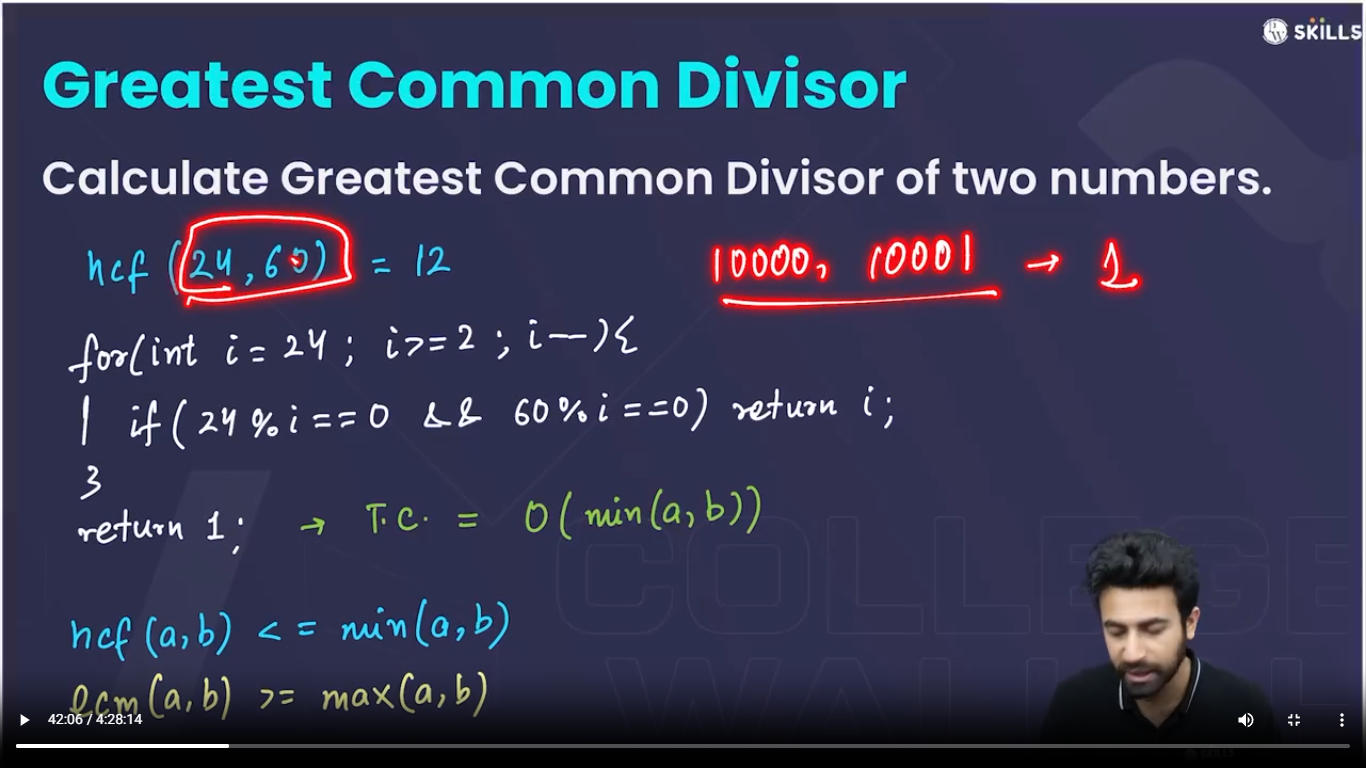 SKILLS
Greatest Common Divisor
Calculate Greatest Common Divisor of two numbers.
hcf (24, 60) = 12
10000, 10001 → 1
for(int i = 24 ; i>=2 ; i--){
| if(24%i==0 && 60%i==0) return i;
}
return 1; → T.C. = O(min(a,b))
hcf(a,b) <= min(a,b)
lcm(a,b) >= max(a,b)
COLLEGE
42:06 / 4:28:14